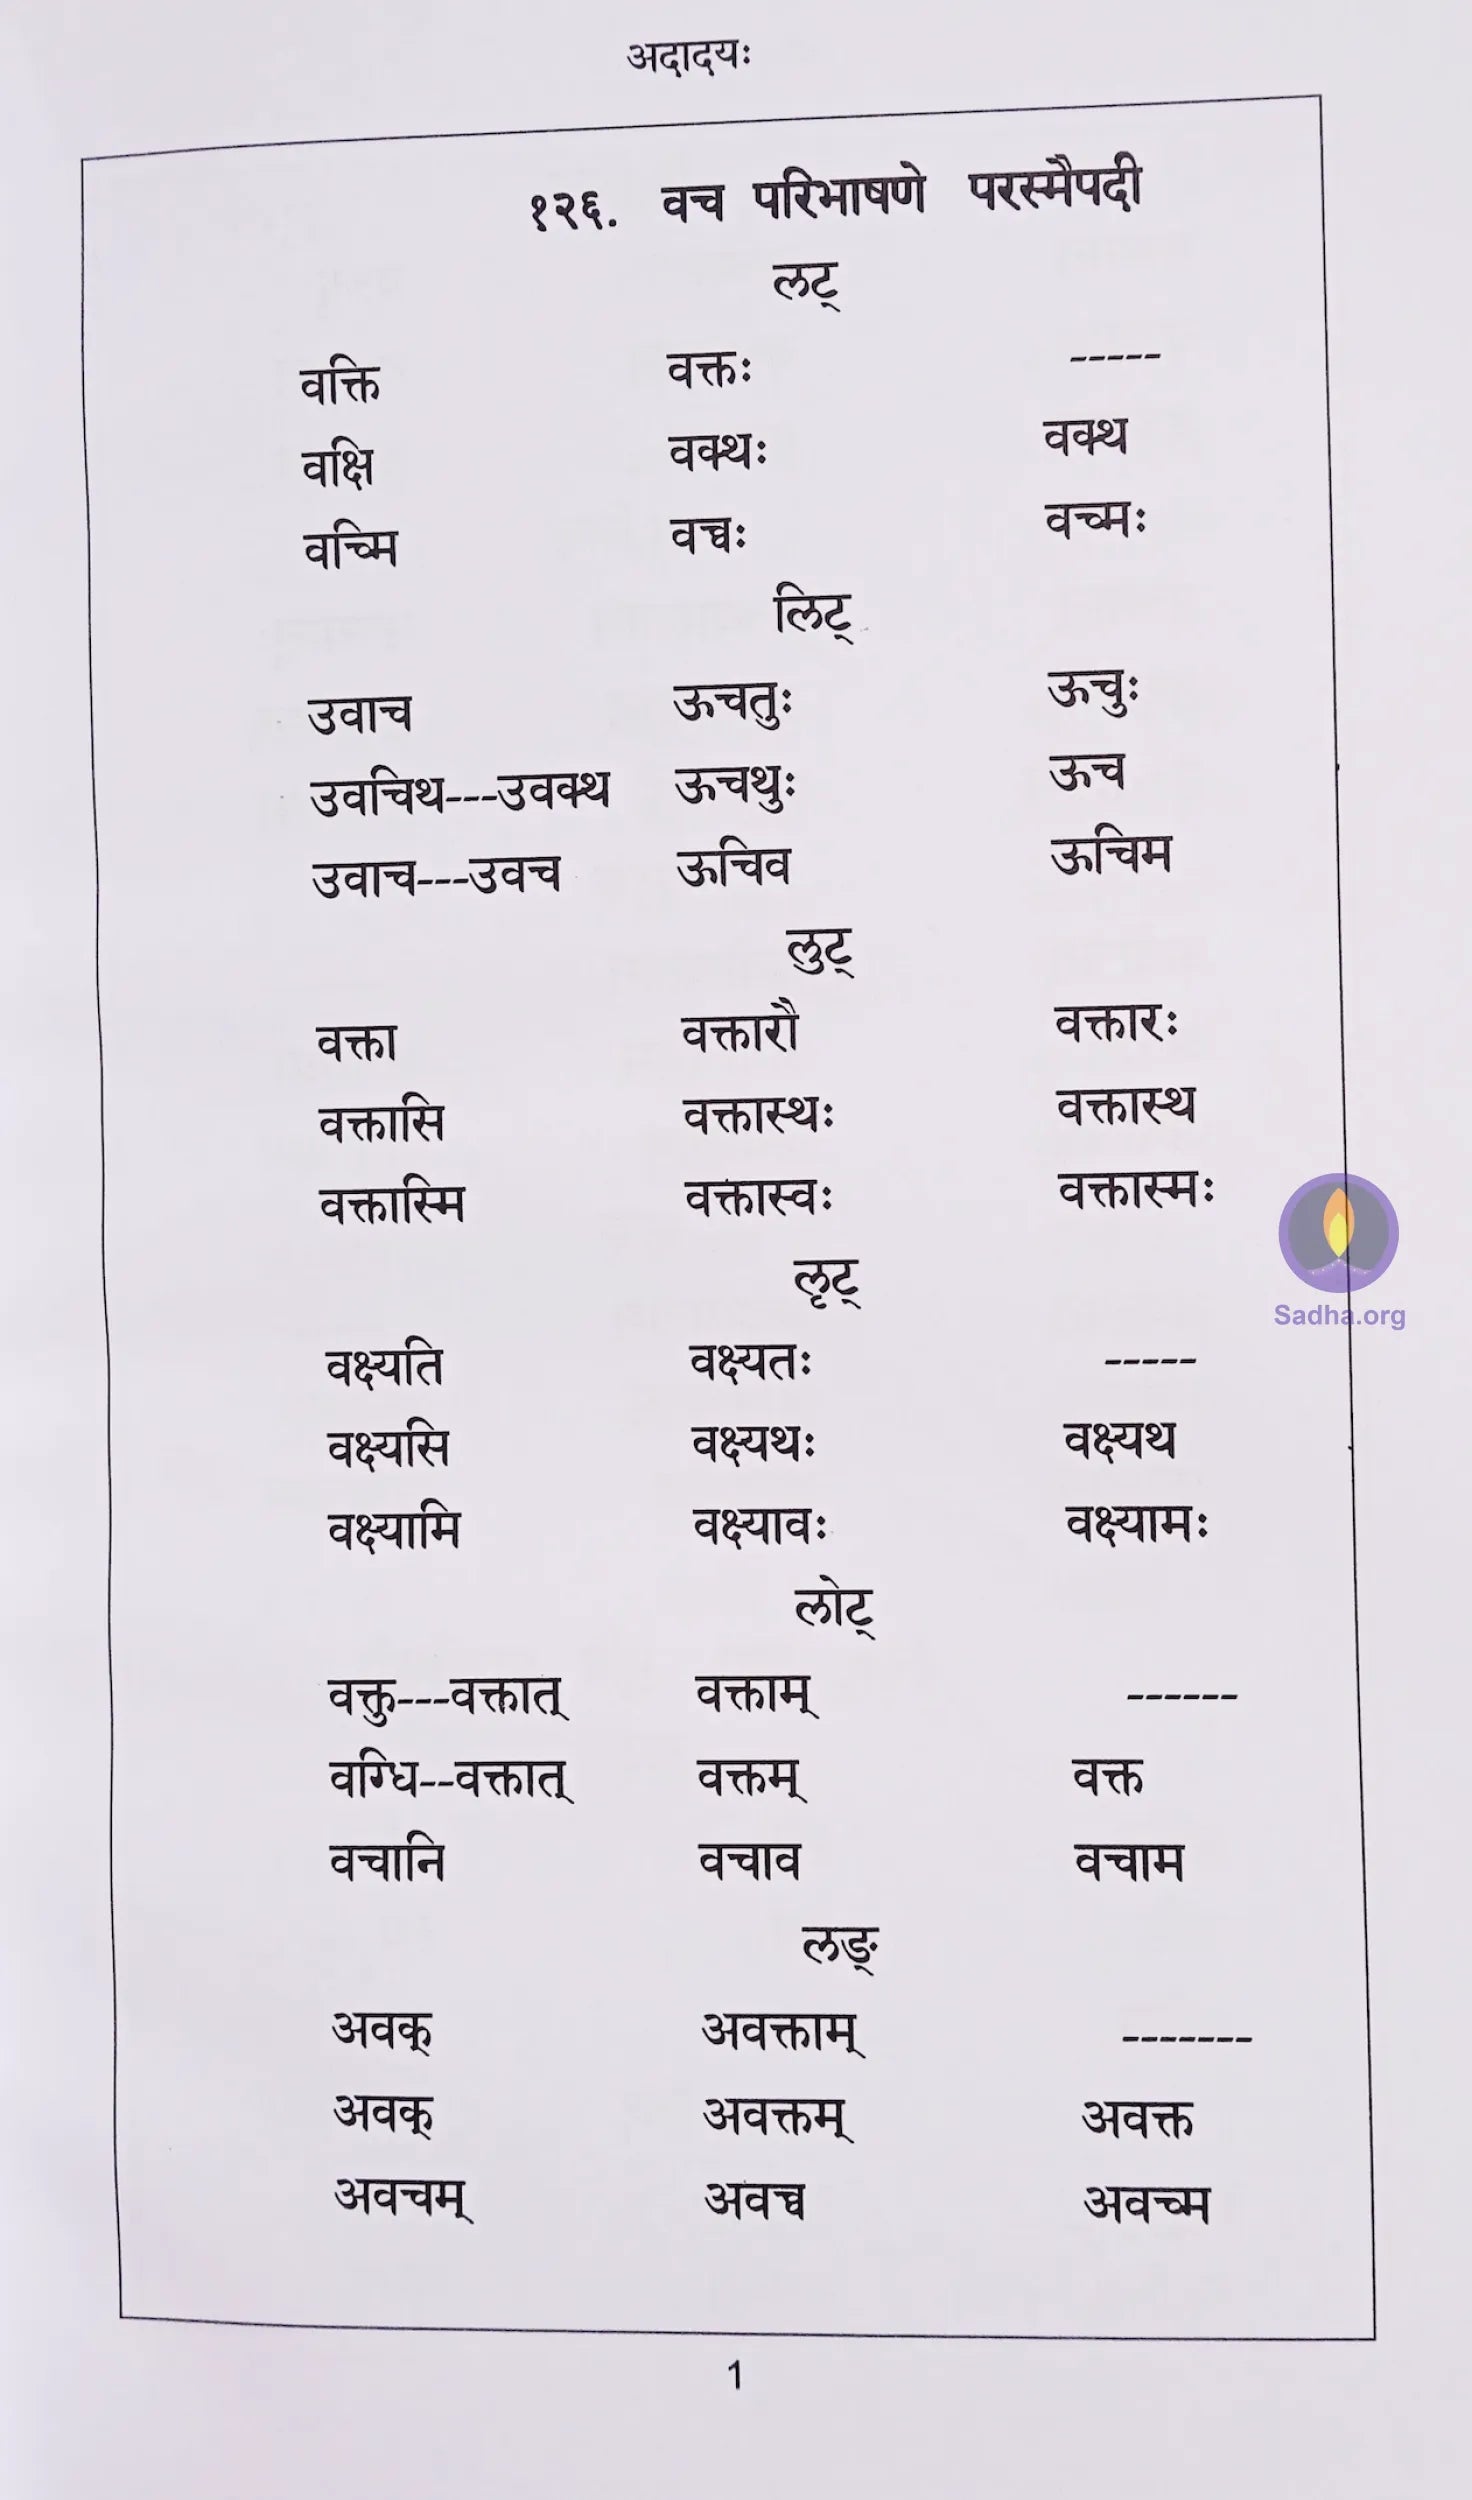 अदादयः
१२६. वच परिभाषणे परस्मैपदी
लट्
वक्ति वक्तः -----
वक्षि वक्थः वक्थ
वच्मि वच्वः वच्मः
लिट्
उवाच ऊचतुः ऊचुः
उवचिथ---उवक्थ ऊचथुः ऊच
उवाच---उवच ऊचिव ऊचिम
लुट्
वक्ता वक्तारौ वक्तारः
वक्तासि वक्तास्थः वक्तास्थ
वक्तास्मि वक्तास्वः वक्तास्मः
लृट्
वक्ष्यति वक्ष्यतः -----
वक्ष्यसि वक्ष्यथः वक्ष्यथ
वक्ष्यामि वक्ष्यावः वक्ष्यामः
लोट्
वक्तु---वक्तात् वक्ताम् ------
वग्धि--वक्तात् वक्तम् वक्त
वचानि वचाव वचाम
लङ्
अवक् अवक्ताम् -------
अवक् अवक्तम् अवक्त
अवचम् अवच्व अवच्म
1
Sadha.org